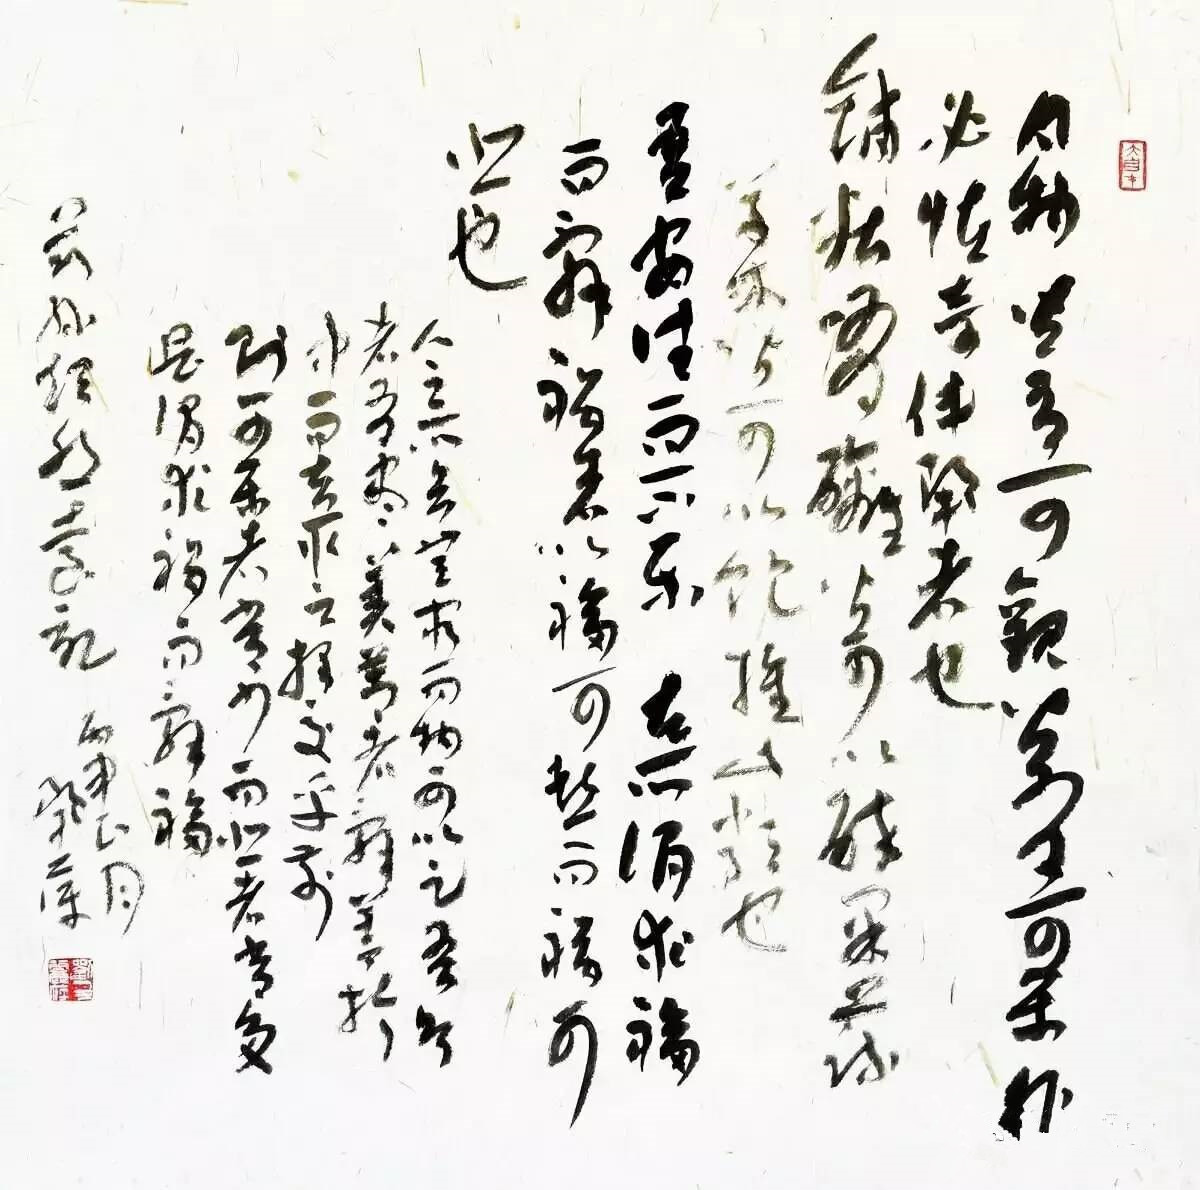 凡物皆有可觀苟有可樂非
必怪奇偉麗者也
餔糟啜醨皆可以醉果蔬
草木皆可以飽推此類也
吾安往而不樂夫所謂求福
而辭禍者以福可喜而禍可
悲也
人之所欲無窮而物可以足吾欲
者有盡美惡者辨戰於
中而去取之擇交乎前
則可樂者常少而悲者常多
是謂求禍而辭福
蘇軾超然臺記
丙申正月